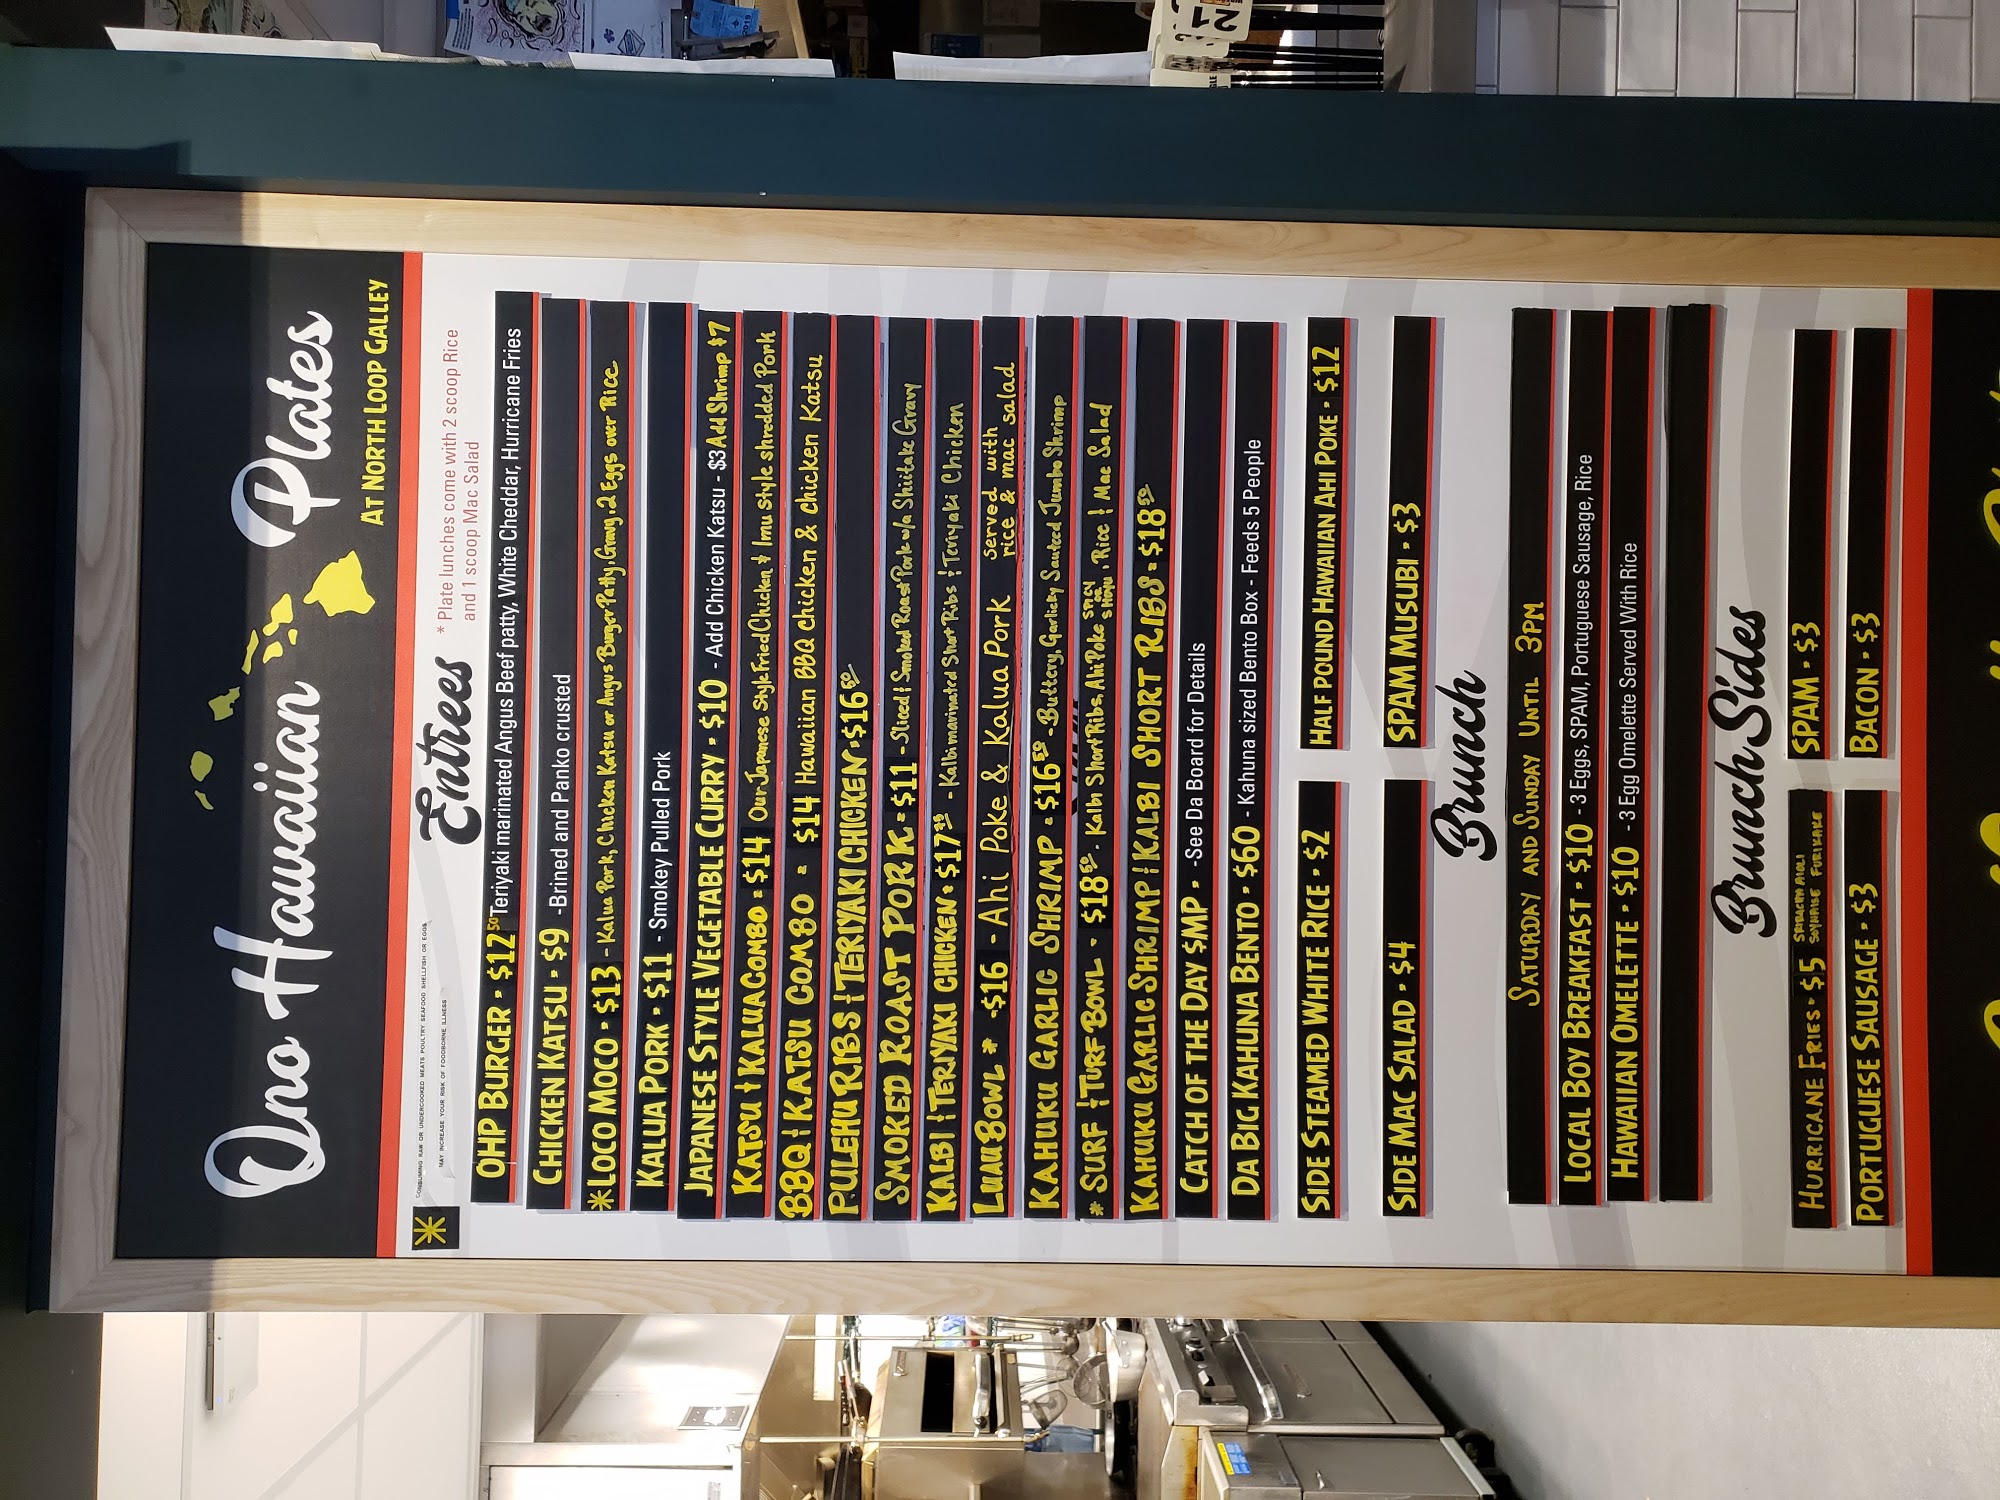 Ono Hawaiian Plates
AT NORTH LOOP GALLEY
CONSUMING RAW OR UNDERCOOKED MEATS POULTRY SEAFOOD SHELLFISH OR EGGS
MAY INCREASE YOUR RISK OF FOODBORNE ILLNESS
Entrees
* Plate lunches come with 2 scoop Rice
and 1 scoop Mac Salad
OHP BURGER • $12 50 Teriyaki marinated Angus Beef patty, White Cheddar, Hurricane Fries
CHICKEN KATSU • $9 -Brined and Panko crusted
*LOCO MOCO • $13 - Kalua Pork, Chicken Katsu or Angus Burger Patty, Gravy, 2 Eggs over Rice
KALUA PORK • $11 - Smokey Pulled Pork
JAPANESE STYLE VEGETABLE CURRY • $10 - Add Chicken Katsu - $3 Add Shrimp $7
KATSU + KALUA COMBO • $14 Our Japanese Style Fried Chicken + Imu style shredded Pork
BBQ + KATSU COMBO • $14 Hawaiian BBQ chicken & chicken Katsu
PULEHU RIBS + TERIYAKI CHICKEN • $16 50
SMOKED ROAST PORK • $11 - Sliced + Smoked Roast Pork w/a Shiitake Gravy
KALBI + TERIYAKI CHICKEN • $17 - Kalbi marinated Short Ribs + Teriyaki Chicken
LUAU BOWL * - $16 - Ahi Poke & Kalua Pork served with
rice & mac salad
KAHUKU GARLIC SHRIMP • $16 50 - Buttery, Garlicky Sauteed Jumbo Shrimp
* SURF + TURF BOWL - $18 50. Kalbi Short Ribs, Ahi Poke SPICY OR SHOYU, Rice + Mac Salad
KAHUKU GARLIC SHRIMP + KALBI SHORT RIBS • $18 50
CATCH OF THE DAY $MP • -See Da Board for Details
DA BIG KAHUNA BENTO • $60 - Kahuna sized Bento Box - Feeds 5 People
SIDE STEAMED WHITE RICE • $2
HALF POUND HAWAIIAN AHI POKE • $12
SIDE MAC SALAD • $4
SPAM MUSUBI • $3
Brunch
SATURDAY AND SUNDAY UNTIL 3PM
LOCAL BOY BREAKFAST • $10 - 3 Eggs, SPAM, Portuguese Sausage, Rice
HAWAIIAN OMELETTE • $10 - 3 Egg Omelette Served With Rice
Brunch Sides
HURRICANE FRIES • $5 SRIRACHA AIOLI
SOYNAISE FURIKAKE
SPAM • $3
PORTUGUESE SAUSAGE • $3
BACON • $3
21